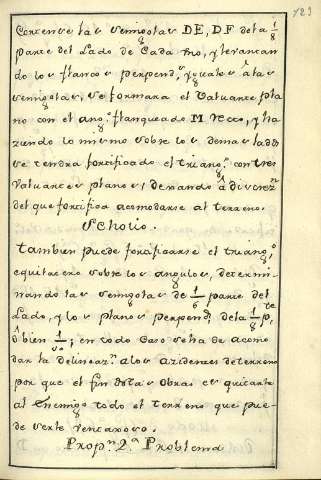 123
Cortense las semigolas DE, DF de la 1/8
parte del Lado de Cada Uno, y levantan
do los flancos perpend.s yguales à las
semigolas, se formara el Valuarte pla
no con el ang.o flanqueado M recto, y ha
ziendo lo mismo sobre los demas lados
se tendra fortificado el triang.o con tres
Valuartes planos, dexando â discrez.n
del que fortifica acomodarse al terreno.
Scholio.
Tambien puede fortificarse el triang.o
equilatero sobre los angulos, determi
nando las semigolas de 1/6 parte del
Lado, y los planos perpend.s de la 1/8 p.te
ô bien 1/10; en todo Caso se ha de acomo
dar la delineaz.n a los azidentes del terreno
por que el fin de las Obras es quitarle
al Enemigo todo el terreno que pue
de serle ventaxoso.
Prop.n 2.a Problema